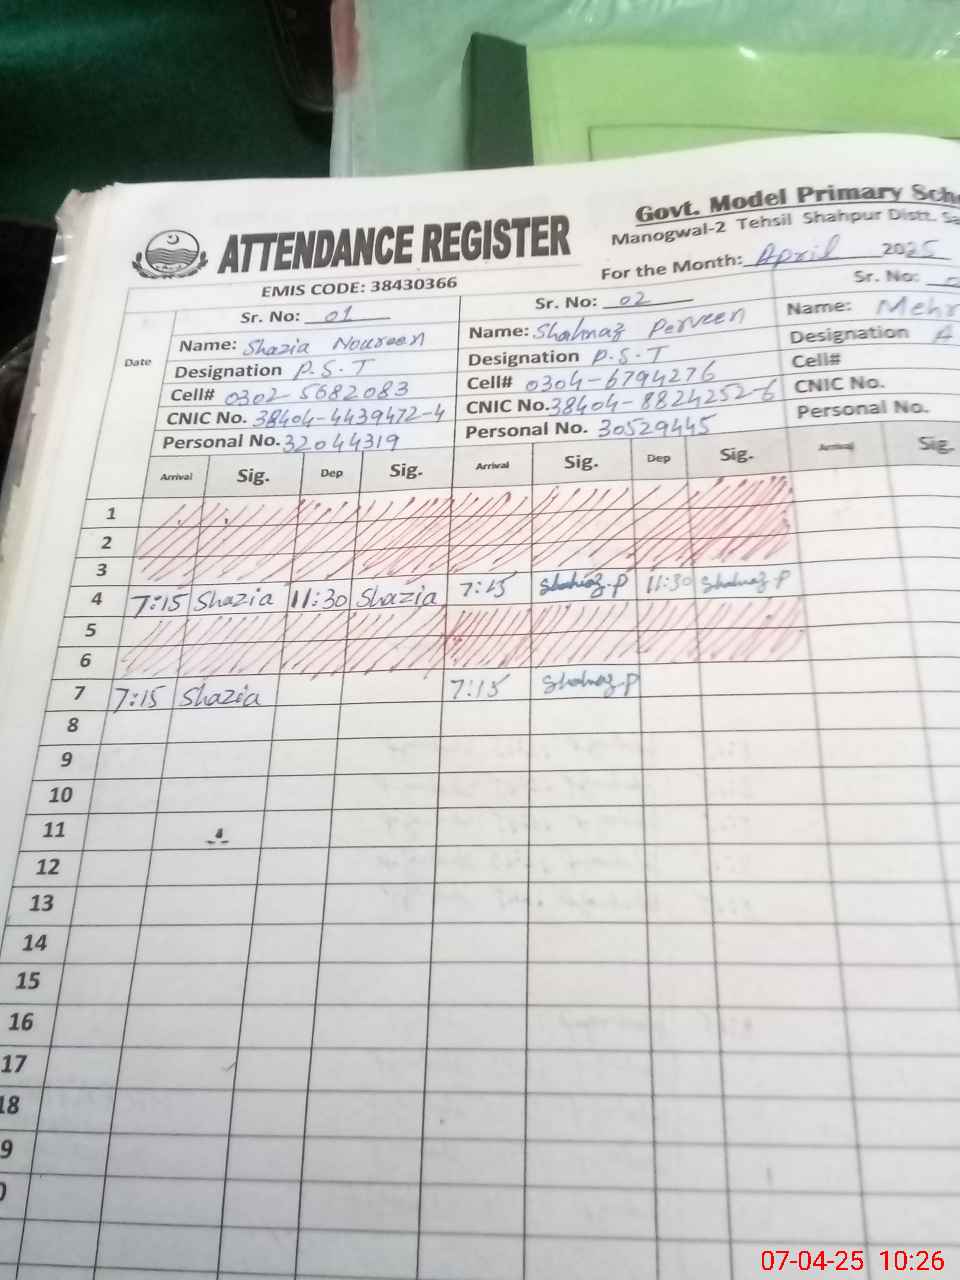 Govt. Model Primary
Manogwal-2 Tehsil Shahpur Distt.
ATTENDANCE REGISTER
For the Month: April 2025
EMIS CODE: 38430366
Sr. No: 01
Sr. No: 02
Sr. No:
Date
Name: Shazia Noureen
Name: Shahnaz Perveen
Name:
Designation P.S.T
Designation P.S.T
Designation A
Cell# 0302-5682083
Cell# 0304-6794276
Cell#
CNIC No. 38404-4439472-4
CNIC No. 38404-8824252-6
CNIC No.
Personal No. 32044319
Personal No. 30529445
Personal No.
Arrival Sig. Dep Sig. Arrival Sig. Dep Sig. Arrival Sig.
1
2
3
4 7:15 Shazia 11:30 Shazia 7:15 Shahnaz.P 11:30 Shahnaz.P
5
6
7 7:15 Shazia 7:15 Shahnaz.P
8
9
10
11
12
13
14
15
16
17
18
9
07-04-25 10:26